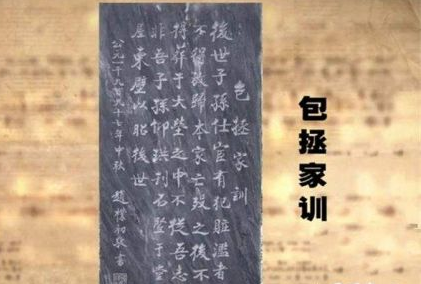 包拯家训
包拯家訓
後世子孫仕宦有犯賍濫者
不得放歸本家亡歿之後不
得葬于大塋之中不從吾志
非吾子孫仰珙刊石竪于堂
屋東壁以昭後世
公元一千九百九十七年中秋 趙樸初敬書